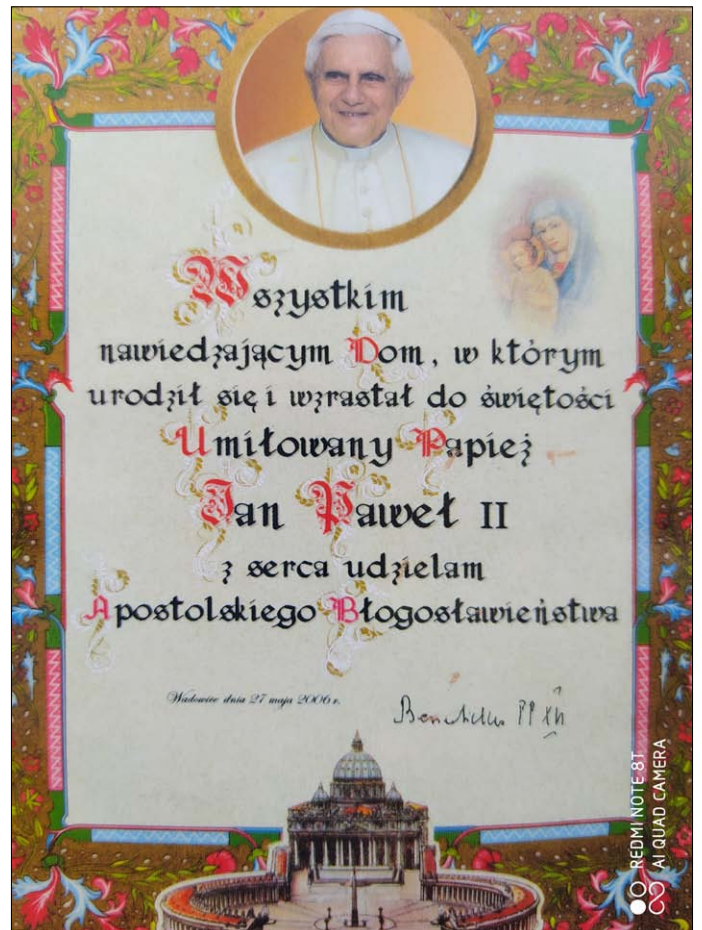 Wszystkim
nawiedzającym Dom, w którym
urodził się i wzrastał do świętości
Umiłowany Papież
Jan Paweł II
z serca udzielam
Apostolskiego Błogosławieństwa
Wadowice dnia 27 maja 2006 r.
Benedictus PP XVI
REDMI NOTE 8T
AI QUAD CAMERA